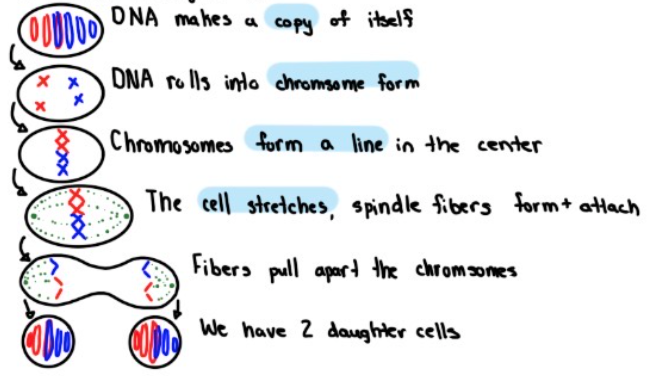 DNA makes a copy of itself
DNA rolls into chromsome form
Chromosomes form a line in the center
The cell stretches, spindle fibers form + attach
Fibers pull apart the chromsomes
We have 2 daughter cells